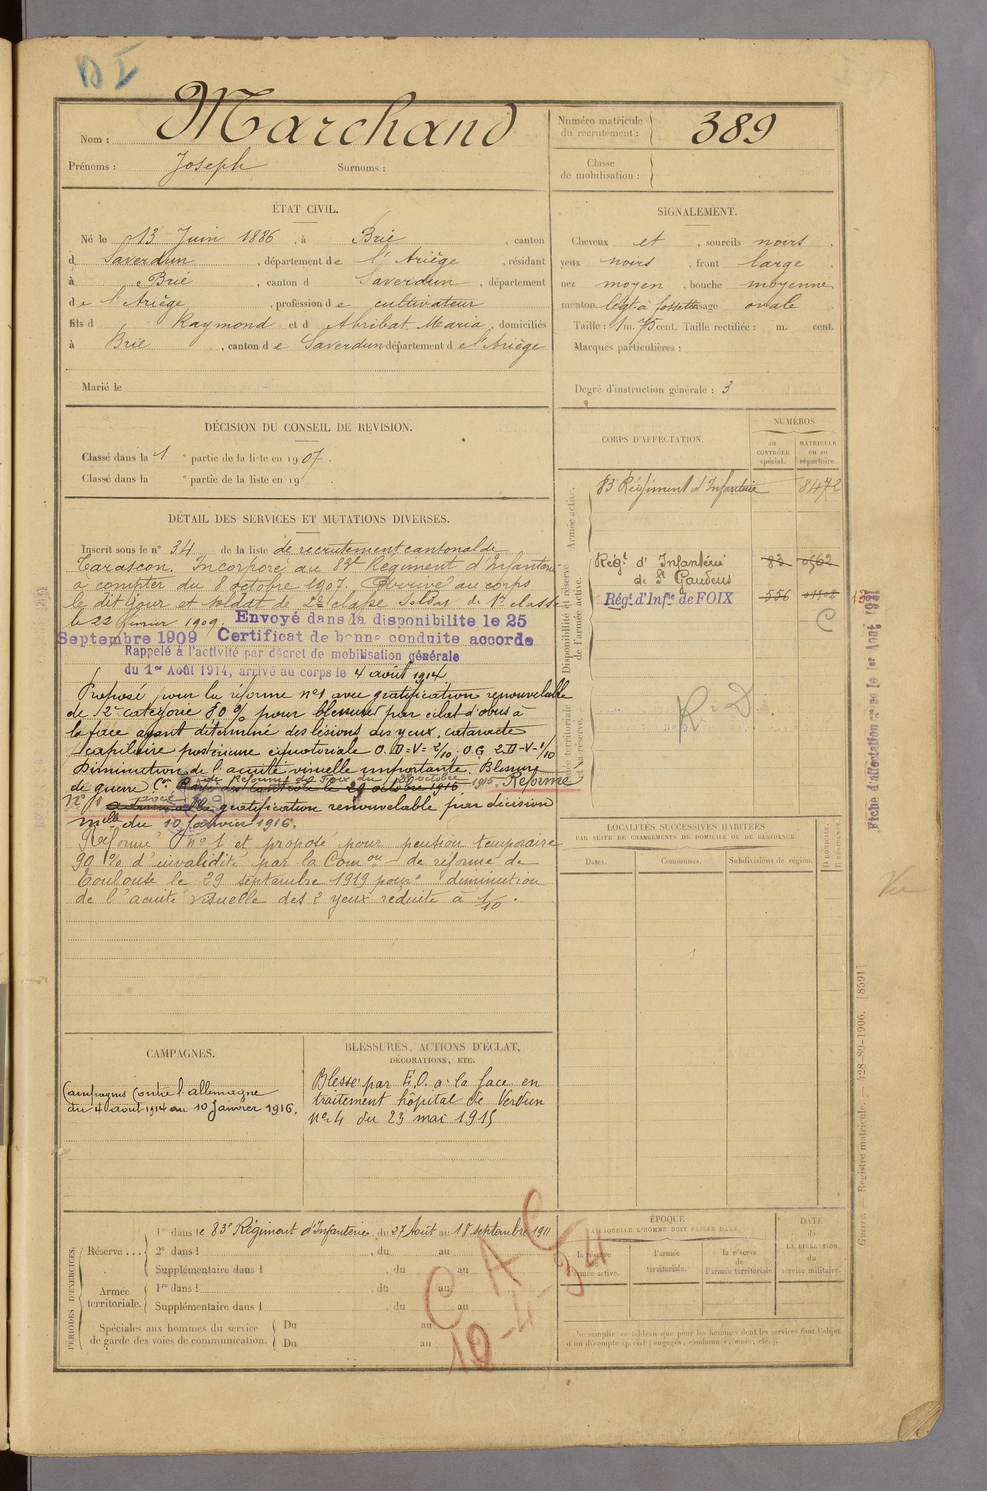 Nom : Marchand
Prénoms : Joseph Surnoms :
Numéro matricule du recrutement : 389
Classe de mobilisation :
ÉTAT CIVIL.
Né le 13 Juin 1886, à Brie, canton
d Saverdun, département de l'Ariège, résidant
à Brie, canton d Saverdun, département
de l'Ariège, profession de cultivateur
fils d Raymond et d Abribat Maria, domiciliés
à Brie, canton de Saverdun département de l'Ariège
Marié le
SIGNALEMENT.
Cheveux et, sourcils noirs,
yeux noirs, front large,
nez moyen, bouche moyenne,
menton à fossette visage ovale
Taille : 1 m. 75 cent. Taille rectifiée : m. cent.
Marques particulières :
Degré d'instruction générale : 3
DÉCISION DU CONSEIL DE REVISION.
Classé dans la 1 e partie de la liste en 1907.
Classé dans la e partie de la liste en 19
DÉTAIL DES SERVICES ET MUTATIONS DIVERSES.
Inscrit sous le n° 34 de la liste de recrutement cantonal de
Tarascon. Incorporé au 83e Régiment d'Infanterie
à compter du 8 octobre 1907. Arrivé au corps
le dit jour et soldat de 2e classe Soldat de 1re classe
le 22 février 1909. Envoyé dans la disponibilité le 25
Septembre 1909 Certificat de bonne conduite accordé
Rappelé à l'activité par décret de mobilisation générale
du 1er Août 1914, arrivé au corps le 4 août 1914
Proposé pour la réforme n°1 avec gratification renouvelable
de 2e catégorie 80 % pour blessures par éclat d'obus à
la face ayant déterminé des lésions des yeux, cataracte
capsulaire postérieure équatoriale O.D=V=2/10. O.G
Diminution de l'acuité visuelle importante. Blessure
de guerre. de Réforme de Foix du 29 octobre 1915. Réformé
N°1 avec gratification renouvelable par décision
Mlle du 10 Janvier 1916.
Réformé n°1 et proposé pour pension temporaire
90 % d'invalidité par la Comon de réforme de
Toulouse le 29 septembre 1919 pour diminution
de l'acuité visuelle des 2 yeux réduite à 1/10.
CORPS D'AFFECTATION.
NUMÉROS
AU CONTRÔLE spécial.
MATRICULE OU AU répertoire.
Armée active.
83 Régiment d'Infanterie 8472
Disponibilité et réserve de l'armée active.
Régt d'Infanterie de St Gaudens 83 0562
Régt d'Infie de FOIX 556
C
R.D
Armée territoriale et sa réserve.
Fiche d'affectation créée le 1er Août 1921
LOCALITÉS SUCCESSIVES HABITÉES
PAR SUITE DE CHANGEMENTS DE DOMICILE OU DE RÉSIDENCE.
Dates. Communes. Subdivisions de région. D DOMICILE. R RÉSIDENCE.
Vu
CAMPAGNES.
Campagnes Contre l'allemagne
du 4 aout 1914 au 10 Janvier 1916.
BLESSURES, ACTIONS D'ÉCLAT,
DÉCORATIONS, ETC.
Blessé par E.O. à la face en
traitement hôpital de Verdun
N° 4 du 23 mai 1915
PÉRIODES D'EXERCICES.
Réserve... 1re dans le 83e Régiment d'Infanterie, du 27 Août au 18 septembre 1911
2e dans l , du au
Supplémentaire dans l du au
Armée territoriale. 1re dans l , du au
Supplémentaire dans l du au
Spéciales aux hommes du service de garde des voies de communication. Du au
Du au
CAC
12-4-34
ÉPOQUE
À LAQUELLE L'HOMME DOIT PASSER DANS
la réserve de l'armée active.
l'armée territoriale.
la réserve de l'armée territoriale
DATE de LA LIBÉRATION du service militaire.
Ne remplir ce tableau que pour les hommes dont les services font l'objet
d'un décompte spécial (engagés, condamnés, omis, etc.).
Guerre. Registre matricule. — 128-89-1906. [8591]